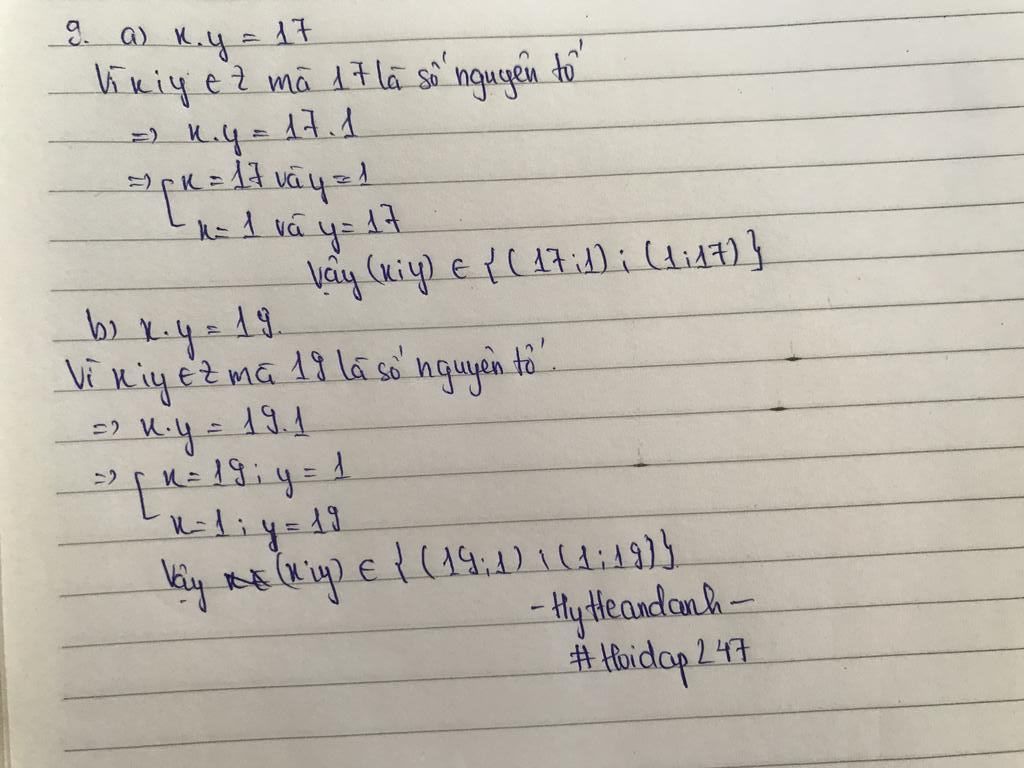 9. a) x.y = 17
Vì x;y ∈ Z mà 17 là số nguyên tố
=> x.y = 17.1
=> [ x = 17 và y = 1
x = 1 và y = 17
Vậy (x;y) ∈ {(17;1) ; (1;17)}
b) x.y = 19.
Vì x;y ∈ Z mà 19 là số nguyên tố.
=> x.y = 19.1
=> [ x = 19 ; y = 1
x = 1 ; y = 19
Vậy (x;y) ∈ {(19;1) ; (1;19)}
- HyHeandanh -
# Hoidap 247